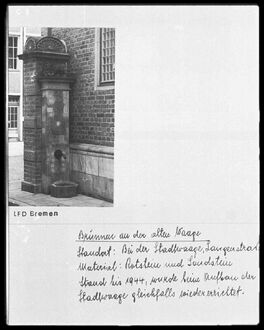 LFD Bremen
Brunnen an der alten Waage
Standort: Bei der Stadtwaage, Langenstraße
Material: Rotstein und Sandstein
Stand bis 1944, wurde beim Aufbau der
Stadtwaage gleichfalls wiedererrichtet.